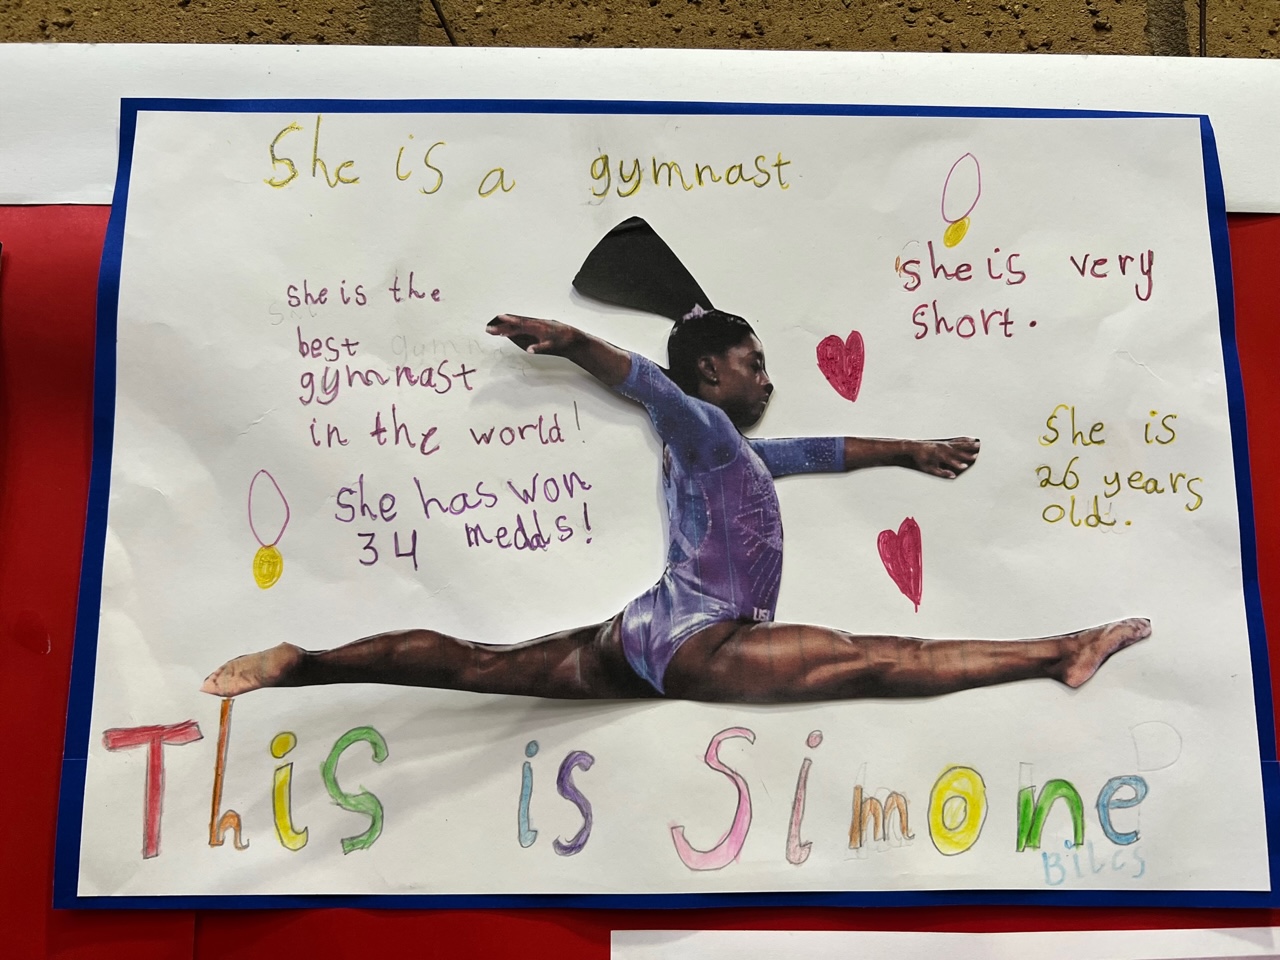 She is a gymnast
she is the
best
gymnast
in the world!
she has won
34 medals!
she is very
short.
She is
26 years
old.
This is Simone
Biles